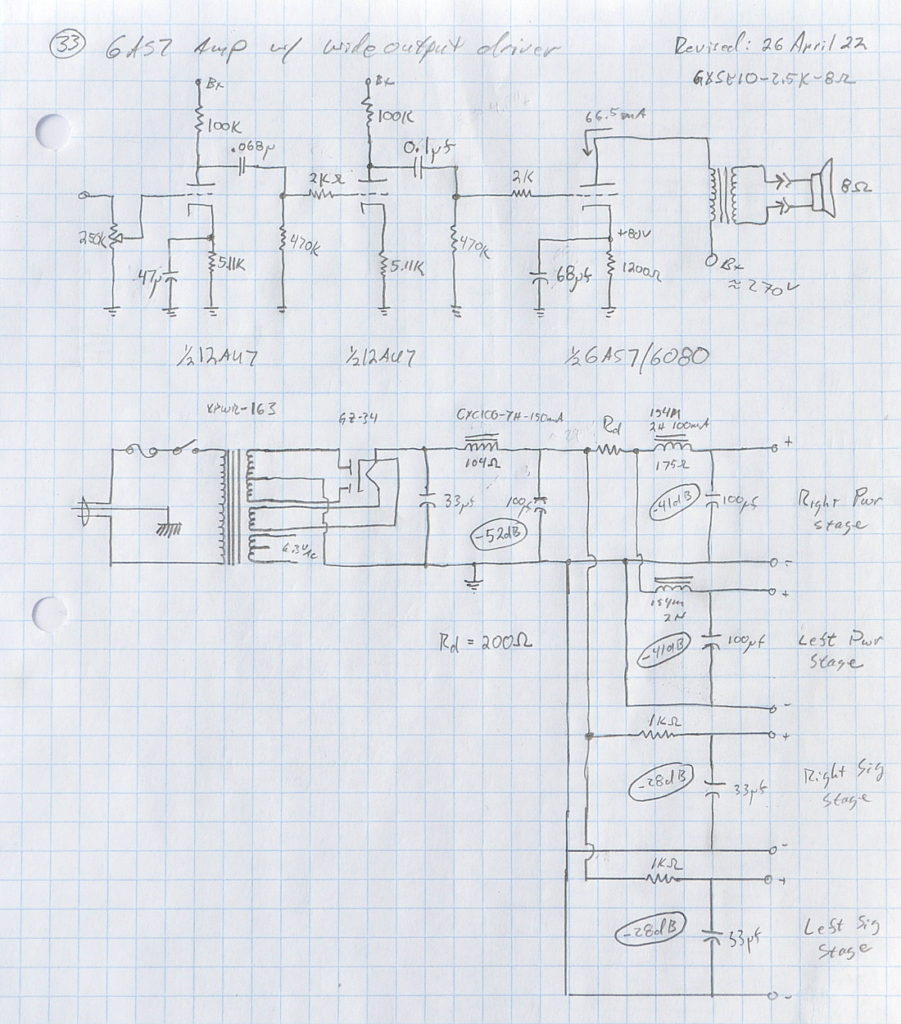 33 6AS7 Amp w/ wide output driver
Revised: 26 April 22
GXSE10-2.5K-8Ω
B+
100K
.068μ
B+
100K
0.1μf
66.5mA
2KΩ
2K
8Ω
250K
470K
470K
+80V
.47μ
5.11K
5.11K
68μf
1200Ω
B+
≈270V
½12AU7
½12AU7
½6AS7/6080
XPWR-163
GZ-34
CXC100-7H-150mA
Rd
154M
2H 100mA
+
104Ω
175Ω
33μf
100μf
-52dB
-41dB
100μf
Right Pwr
Stage
6.3Vac
-
+
154M
2H
Rd = 200Ω
-41dB
100μf
Left Pwr
Stage
-
1KΩ
+
-28dB
33μf
Right Sig
Stage
-
1KΩ
+
-28dB
33μf
Left Sig
Stage
-